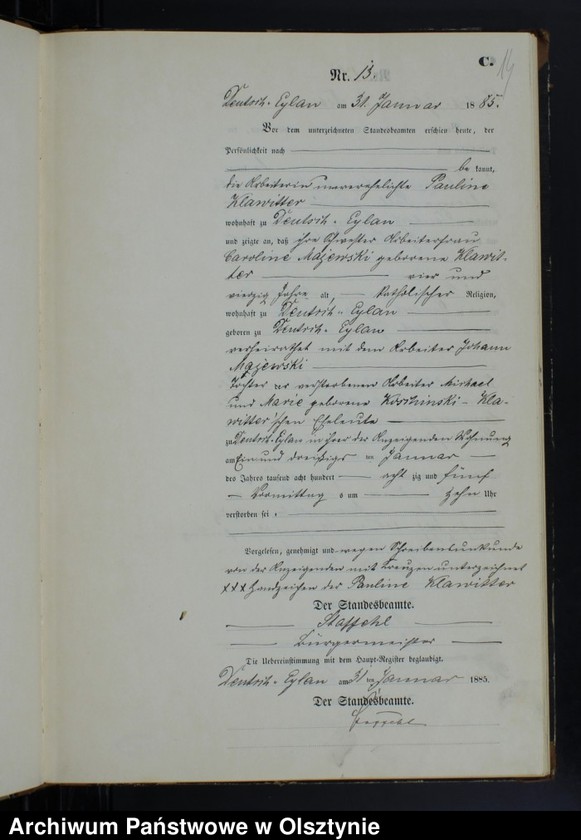 C.
14
Nr. 13.
Deutsch-Eylau am 31 Januar 1885.
Vor dem unterzeichneten Standesbeamten erschien heute, der
Persönlichkeit nach
be kannt,
die Arbeiterin unverehelichte Pauline
Klawitter
wohnhaft zu Deutsch-Eylau
und zeigte an, daß ihre Schwester Arbeiterfrau
Caroline Majewski geborene Klawit-
ter vier und
vierzig Jahre alt, katholischer Religion,
wohnhaft zu Deutsch-Eylau
geboren zu Deutsch-Eylau
verheirathet mit dem Arbeiter Johann
Majewski
Tochter der verstorbenen Arbeiter Michael
und Marie geborene Kla-
witter'schen Eheleute
zu Deutsch-Eylau in ihrer der Anzeigenden Wohnung
am Ein und dreißigs ten Januar
des Jahres tausend acht hundert acht zig und fünf
Vormittag s um zehn Uhr
verstorben sei.
Vorgelesen, genehmigt und wegen Schreibensunkunde
von der Anzeigenden mit Kreuzen unterzeichnet
XXX Handzeichen der Pauline Klawitter
Der Standesbeamte.
Staffehl
Bürgermeister
Die Uebereinstimmung mit dem Haupt-Register beglaubigt.
Deutsch-Eylau am 31 ten Januar 1885.
Der Standesbeamte.
Staffehl
Archiwum Państwowe w Olsztynie